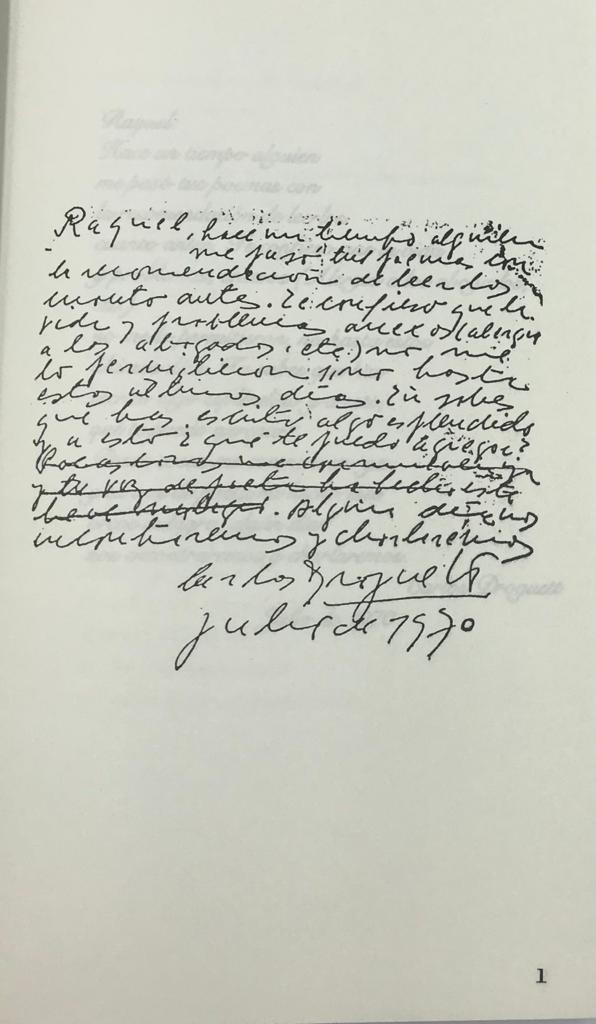 Raquel, hace un tiempo alguien
me pasó tus poemas con
la recomendación de leerlos
cuanto antes. Te confieso que la
vida y problemas anexos (alergia
a los abogados, etc) no me
lo permitieron sino hasta
estos últimos días. Tú sabes
que has escrito algo espléndido
y a esto ¿qué te puedo agregar?
Pocas
y tu voz de poeta ha hecho este
breve milagro. Algún día nos
encontraremos y charlaremos
Carlos Droguett
julio de 1970
Raquel:
Hace un tiempo alguien
me pasó tus poemas con
Droguett
1